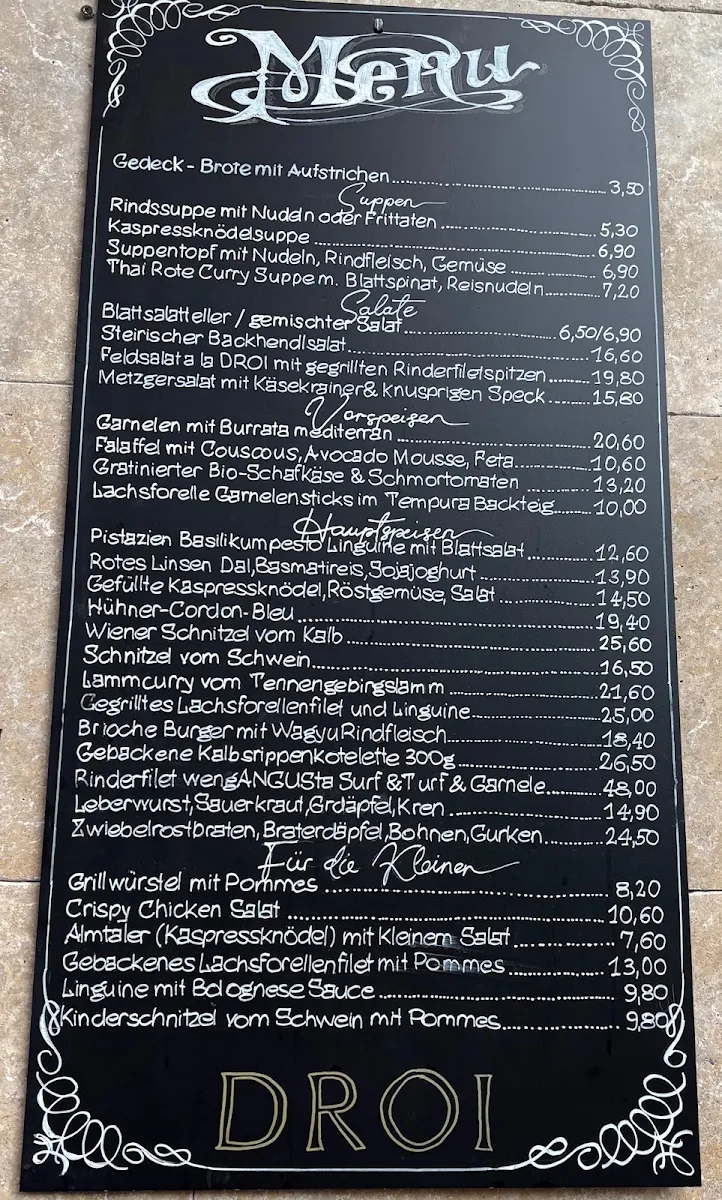 Menu
Gedeck - Brote mit Aufstrichen 3,50
Suppen
Rindssuppe mit Nudeln oder Frittaten 5,30
Kaspressknödelsuppe 6,90
Suppentopf mit Nudeln, Rindfleisch, Gemüse 6,90
Thai Rote Curry Suppe m. Blattspinat, Reisnudeln 7,20
Salate
Blattsalatteller / gemischter Salat 6,50/6,90
Steirischer Backhendlsalat 16,60
Feldsalat a la DROI mit gegrillten Rinderfiletspitzen 19,80
Metzgersalat mit Käsekrainer & knusprigen Speck 15,80
Vorspeisen
Garnelen mit Burrata mediterran 20,60
Falaffel mit Couscous, Avocado Mousse, Feta 10,60
Gratinierter Bio-Schafkäse & Schmortomaten 13,20
Lachsforelle Garnelensticks im Tempura Backteig 10,00
Hauptspeisen
Pistazien Basilikumpesto Linguine mit Blattsalat 12,60
Rotes Linsen Dal, Basmatireis, Sojajoghurt 13,90
Gefüllte Kaspressknödel, Röstgemüse, Salat 14,50
Hühner-Cordon-Bleu 19,40
Wiener Schnitzel vom Kalb 25,60
Schnitzel vom Schwein 16,50
Lammcurry vom Tennengebirgslamm 21,60
Gegrilltes Lachsforellenfilet und Linguine 25,00
Brioche Burger mit Wagyu Rindfleisch 18,40
Gebackene Kalbsrippenkotelette 300g 26,50
Rinderfilet wengANGUSta Surf & Turf & Garnele 48,00
Leberwurst, Sauerkraut, Erdäpfel, Kren 14,90
Zwiebelrostbraten, Braterdäpfel, Bohnen, Gurken 24,50
Für die Kleinen
Grillwürstel mit Pommes 8,20
Crispy Chicken Salat 10,60
Almtaler (Kaspressknödel) mit Kleinem Salat 7,60
Gebackenes Lachsforellenfilet mit Pommes 13,00
Linguine mit Bolognese Sauce 9,80
Kinderschnitzel vom Schwein mit Pommes 9,80
DROI